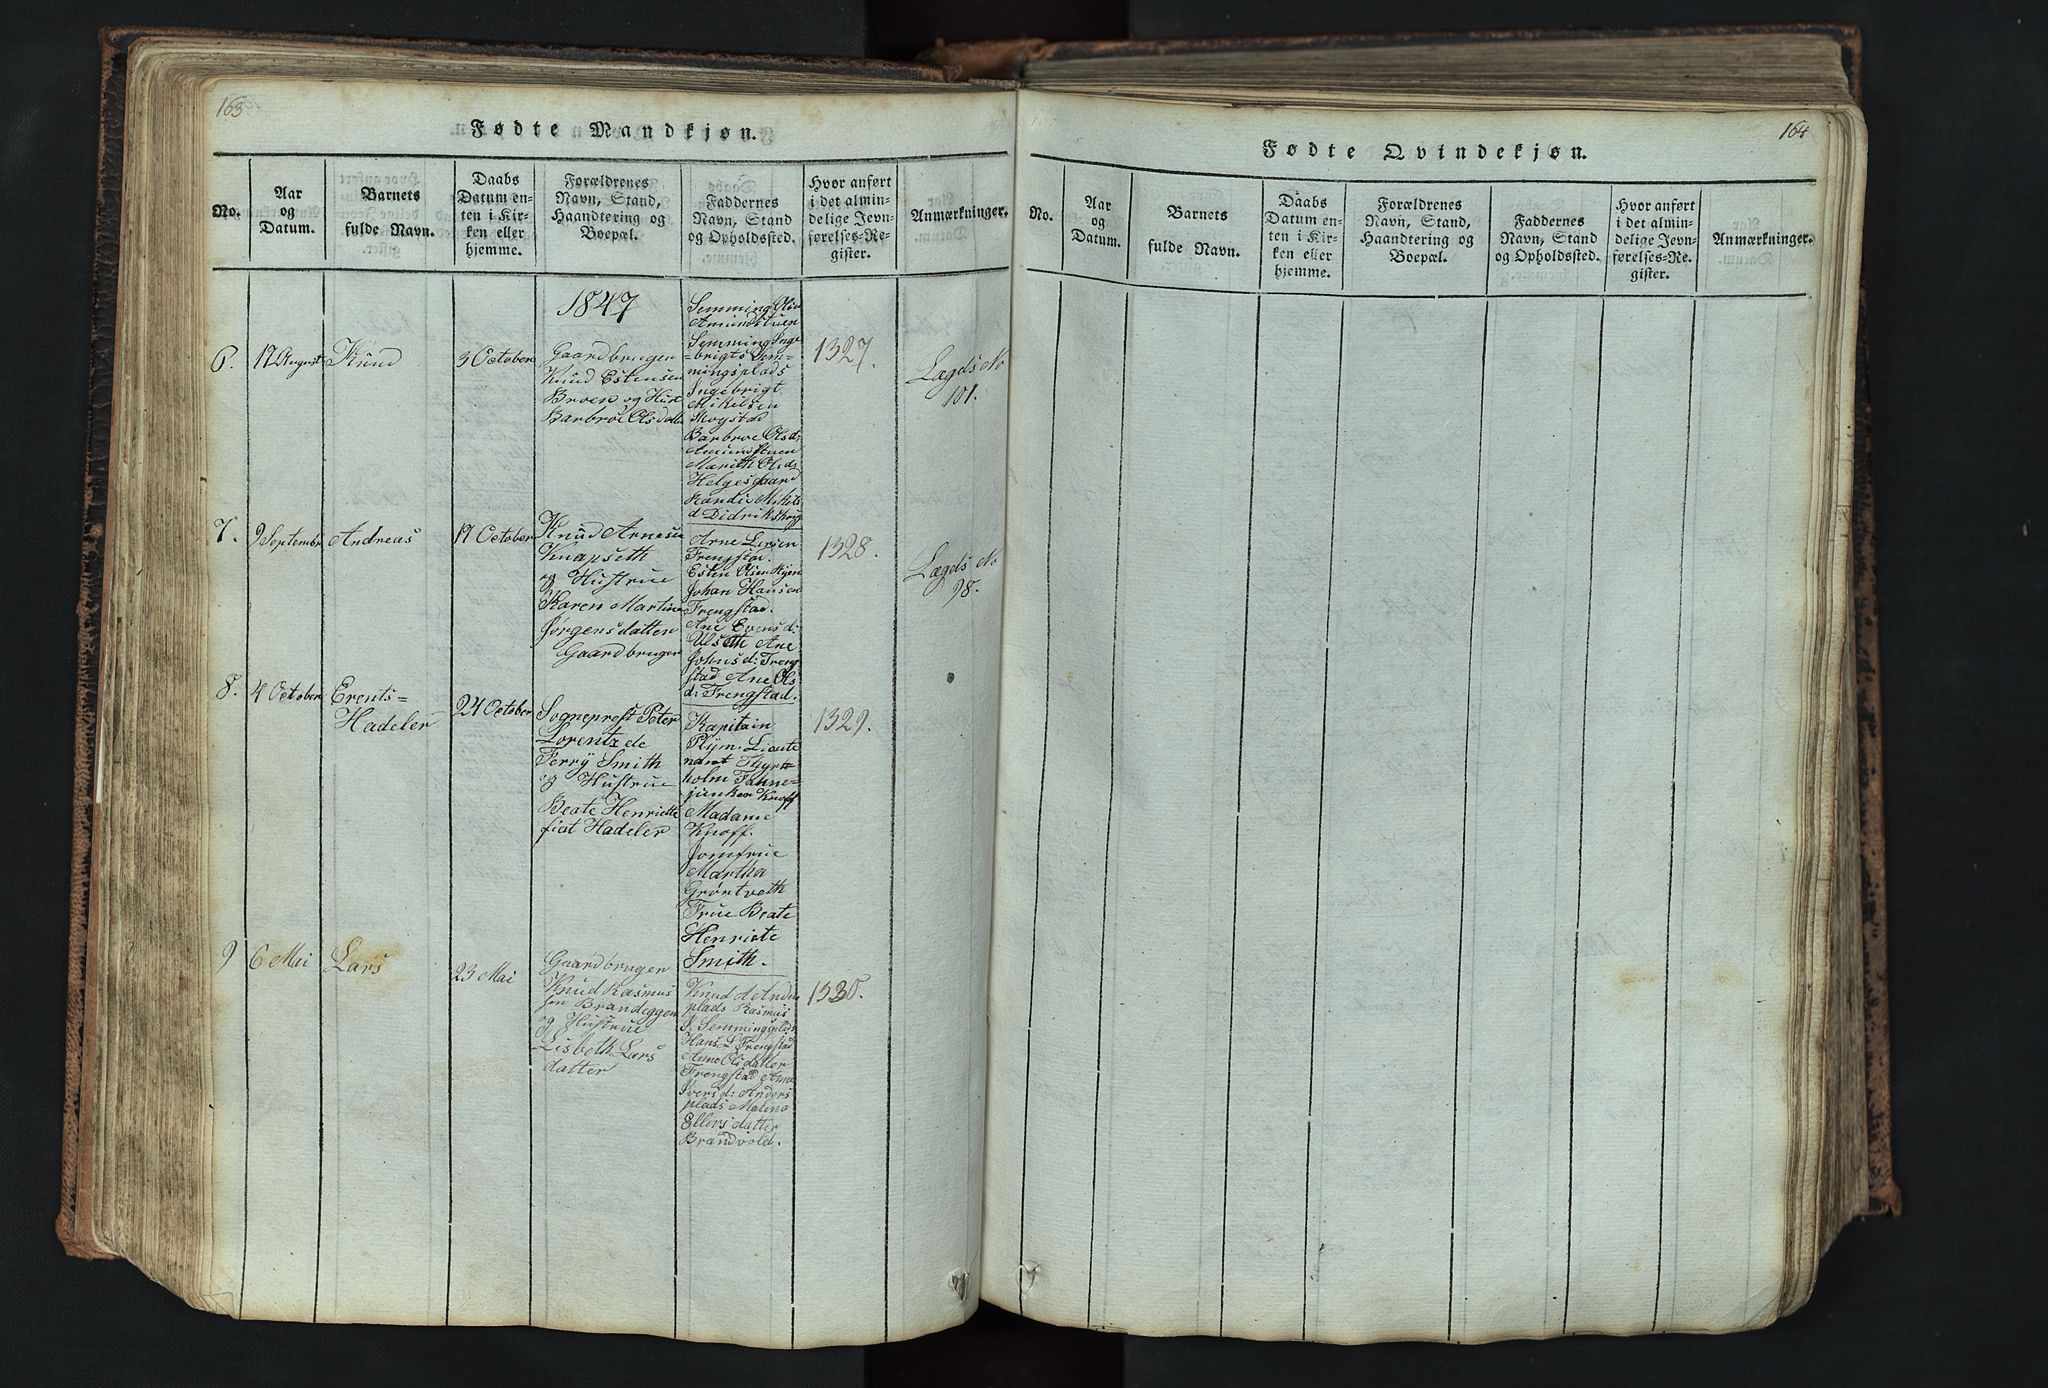 163
Fødte Mandkjøn.
No.
Aar
og
Datum.
Barnets
fulde Navn.
Daabs
Datum en-
ten i Kir-
ken eller
hjemme.
Forældrenes
Navn, Stand,
Haandtering og
Boepæl.
Faddernes
Navn, Stand
og Opholdssted.
Hvor anført
i det almin-
delige Jevn-
førelses-Re-
gister.
Anmærkninger.
1847
6.
17 August
Knud
3 October
Gaardbruger
Knud Estensen
Broen og Hust
Barbroe Olsdatter
Semming Olsen
Amundstuen
Semming Inge
=brigts Sem-
mingsplads
Ingebrigt
Mikelsen
Mogstad
Barbroe Olsd:
Amundstuen
Marith Olsd:
Helgesgaard
Randi Mikels
d Didriks
1327.
Lægds No
101.
7.
9 Septembr
Andreas
17 October
Knud Arnesen
Knapseth
og Hustrue
Karen Martine
Jørgensdatter
Gaardbruger
Arne Larsen
Frengstad.
Esten Olsen
Johan Hansen
Frengstad.
Ane Evensd:
Ulseth Ane
Johnsd: Freng
stad Ane Ols
d: Frengstad.
1328.
Lægds No
98.
8.
4 October
Erents=
Hadeler
24 October
Sogneprest Peter
Lorentz de
Ferry Smith
og Hustrue
Beate Henriette
fiat Hadeler
Kapitain
Plÿm. Lieute
nant Thyrt
holm Fahne=
junker Knoff
Madame
Knoff.
Jomfrue
Martha
Grørtveth
Frue Beate
Henriete
Smith.
1329.
9
6 Mai
Lars
23 Mai
Gaardbruger
Knud Rasmus
sen Brandeggen
og Hustrue
Lisbeth Lars
datter
Knud Anders
plads Rasmus
J. Semmingsplds
Hans L Frengstad
Anne Olsdatter
Frengstad Anne
Iversd: Anders
plads Malena
Ellersdatter
Brandvold.
1330.
164
Fødte Qvindekjøn.
No.
Aar
og
Datum.
Barnets
fulde Navn.
Daabs
Datum en-
ten i Kir-
ken eller
hjemme.
Forældrenes
Navn, Stand,
Haandtering og
Boepæl.
Faddernes
Navn, Stand
og Opholdssted.
Hvor anført
i det almin-
delige Jevn-
førelses-Re-
gister.
Anmærkninger.